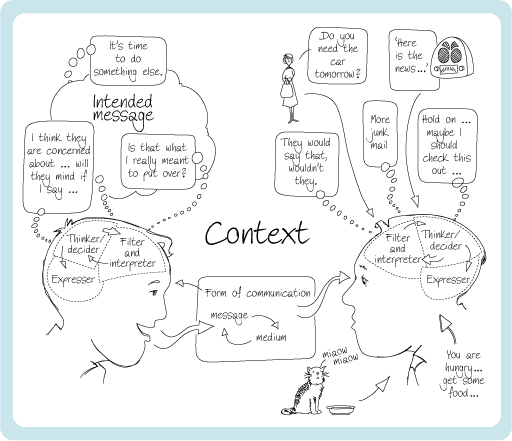 It's time
to do
something else.
Intended
message
I think they
are concerned
about ... will
they mind if
I say ...
Is that what
I really meant
to put over?
Do you
need the
car
tomorrow?
'Here
is the
news...'
They would
say that,
wouldn't
they.
More
junk
mail
Hold on ...
maybe I
should
check this
out ...
Context
Thinker/
decider
Filter
and
interpreter
Expresser
Filter
and
interpreter
Thinker/
decider
Expresser
Form of communication
message
medium
miaow
miaow
You are
hungry...
get some
food...